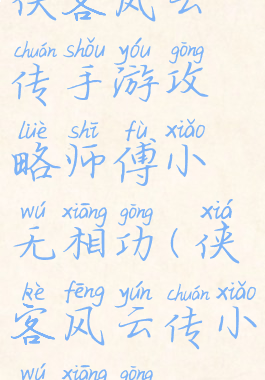 侠客风云
chuán shǒu yóu gōng
传手游攻
lüè shī fù xiǎo
略师傅小
wú xiāng gōng xiá
无相功(侠
kè fēng yún chuán xiǎo
客风云传小
wú xiāng gōng